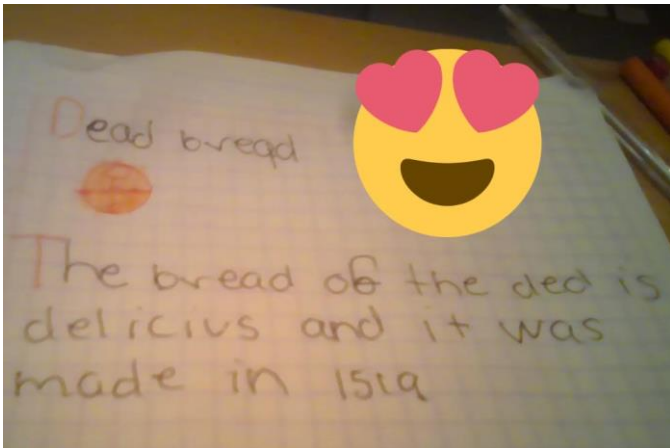 Dead bread
The bread of the ded is
delicius and it was
made in 1519